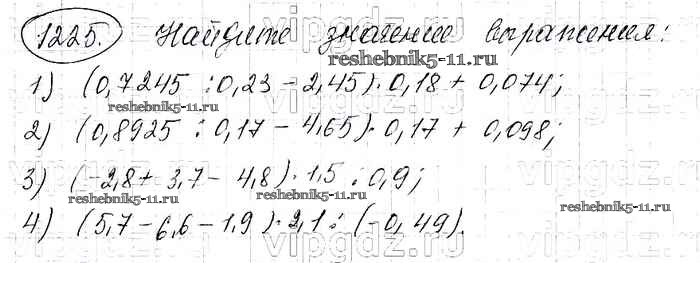 1225. Найдите значение выражения:
reshebnik5-11.ru
1) (0,7245 : 0,23 - 2,45) · 0,18 + 0,074;
reshebnik5-11.ru
2) (0,8925 : 0,17 - 4,65) · 0,17 + 0,098;
3) (-2,8 + 3,7 - 4,8) · 1,5 : 0,9;
reshebnik5-11.ru
reshebnik5-11.ru
4) (5,7 - 6,6 - 1,9) · 2,1 : (-0,49).
vipgdz.ru